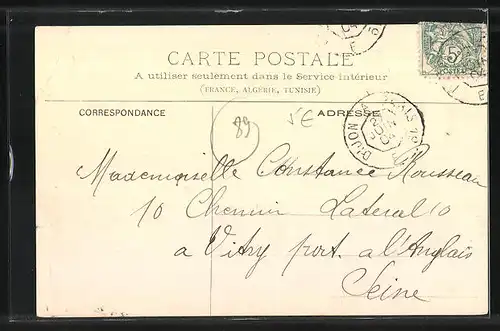 CARTE POSTALE
A utiliser seulement dans le Service intérieur
(FRANCE, ALGÉRIE, TUNISIE)
CORRESPONDANCE
ADRESSE
89
5E
5
Mademoiselle Constance Rousseau
10 Chemin Lateral 10
a Vitry port a l'Anglais
Seine